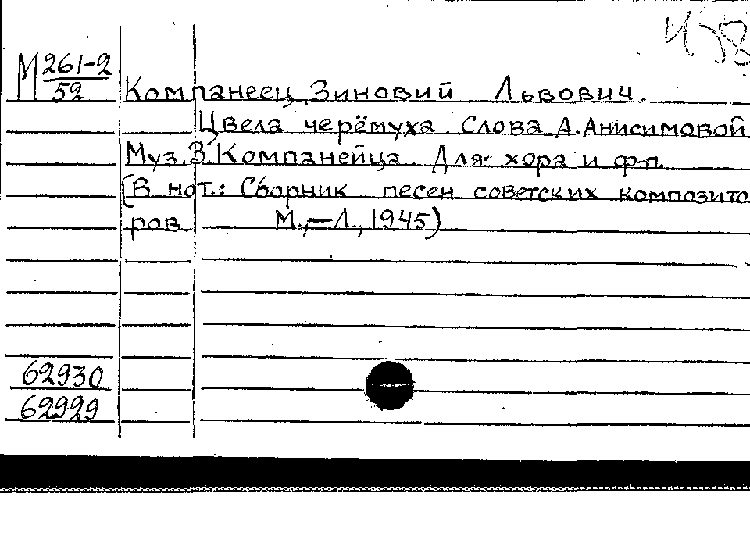 М 261-2
52
Компанеец Зиновий Львович.
Цвела черёмуха. Слова А.Анисимовой
Муз.З.Компанейца. Для хора и ф-п.
(В нот.: Сборник песен советских композито
ров М.,—Л., 1945)
62930
62929